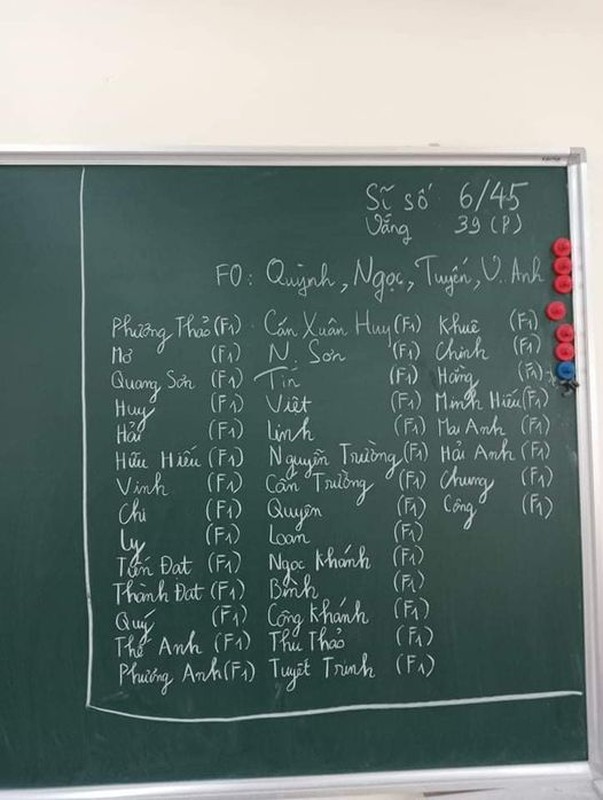 Sĩ số 6/45
Vắng 39 (P)
F0: Quỳnh, Ngọc, Tuyến, V. Anh
Phương Thảo (F1) Cấn Xuân Huy (F1) Khuê (F1)
Mơ (F1) N. Sơn (F1) Chinh (F1)
Quang Sơn (F1) Tín (F1) Hằng (F1)
Huy (F1) Việt (F1) Minh Hiếu (F1)
Hải (F1) Linh (F1) Mai Anh (F1)
Hữu Hiếu (F1) Nguyễn Trường (F1) Hải Anh (F1)
Vinh (F1) Cấn Trường (F1) Chung (F1)
Chi (F1) Quyên (F1) Công (F1)
Ly (F1) Loan (F1)
Tiến Đạt (F1) Ngọc Khánh (F1)
Thành Đạt (F1) Bình (F1)
Quý (F1) Công Khánh (F1)
Thế Anh (F1) Thu Thảo (F1)
Phương Anh (F1) Tuyết Trinh (F1)